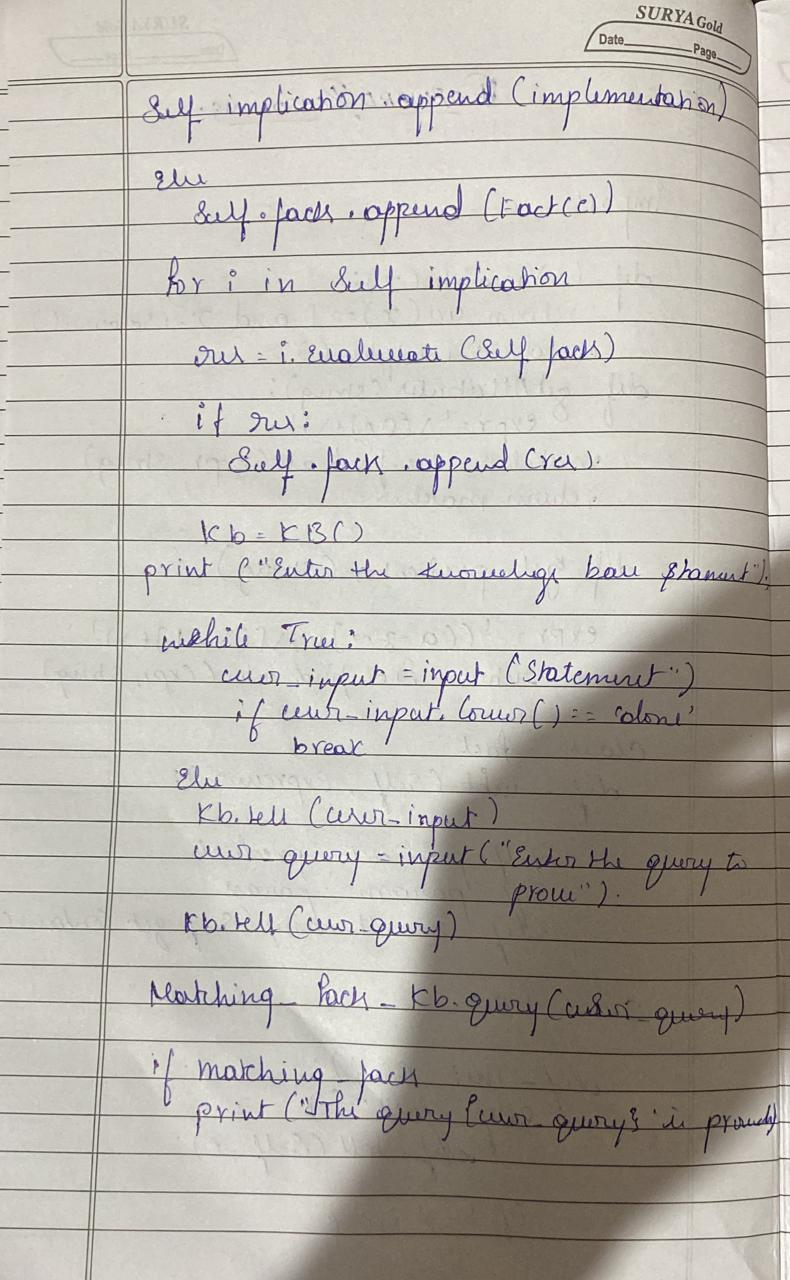 SURYA Gold
Date Page
Self. implication. append (implementation)
Else
Self. facts. append (Fact(e))
for i in Self implication
res = i. Evaluate (Self facts)
if res:
Self. facts. append (res).
Kb = KB()
print ("Enter the knowledge base statement").
while True:
user_input = input (Statement")
if user_input. lower() == 'done'
break
Else
Kb. tell (user_input)
user_query = input ("Enter the query to
prove").
Kb. tell (user_query)
Matching_facts_ Kb. query (user_query)
if matching_facts
print ("The query {user_query}' is proved)